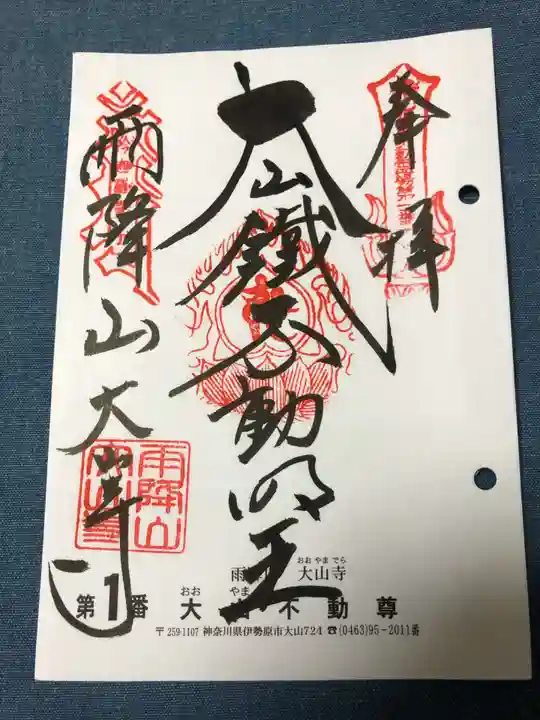 奉拝
大山鐵不動明王
雨降山大山寺
雨降山
おおやまでら
雨 大山寺
おお やま
第1番 大山不動尊
〒259-1107 神奈川県伊勢原市大山724 ☎(0463)95-2011番